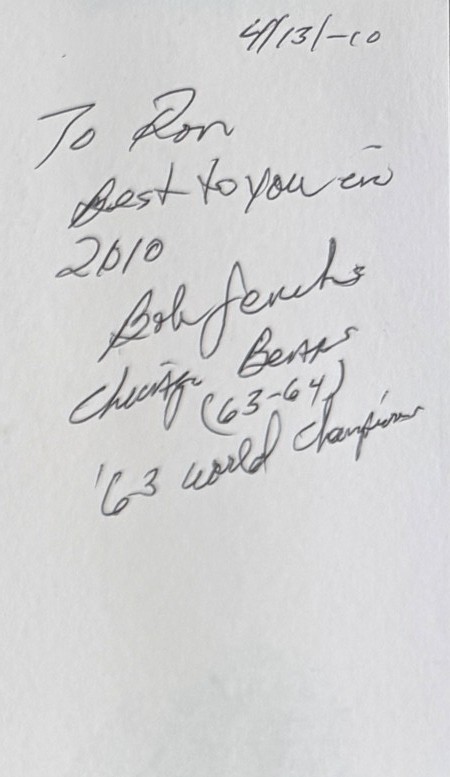 4/13/-10
To Ron
Best to you in
2010
Bob Jencks
Chicago Bears
(63-64)
'63 World Champions